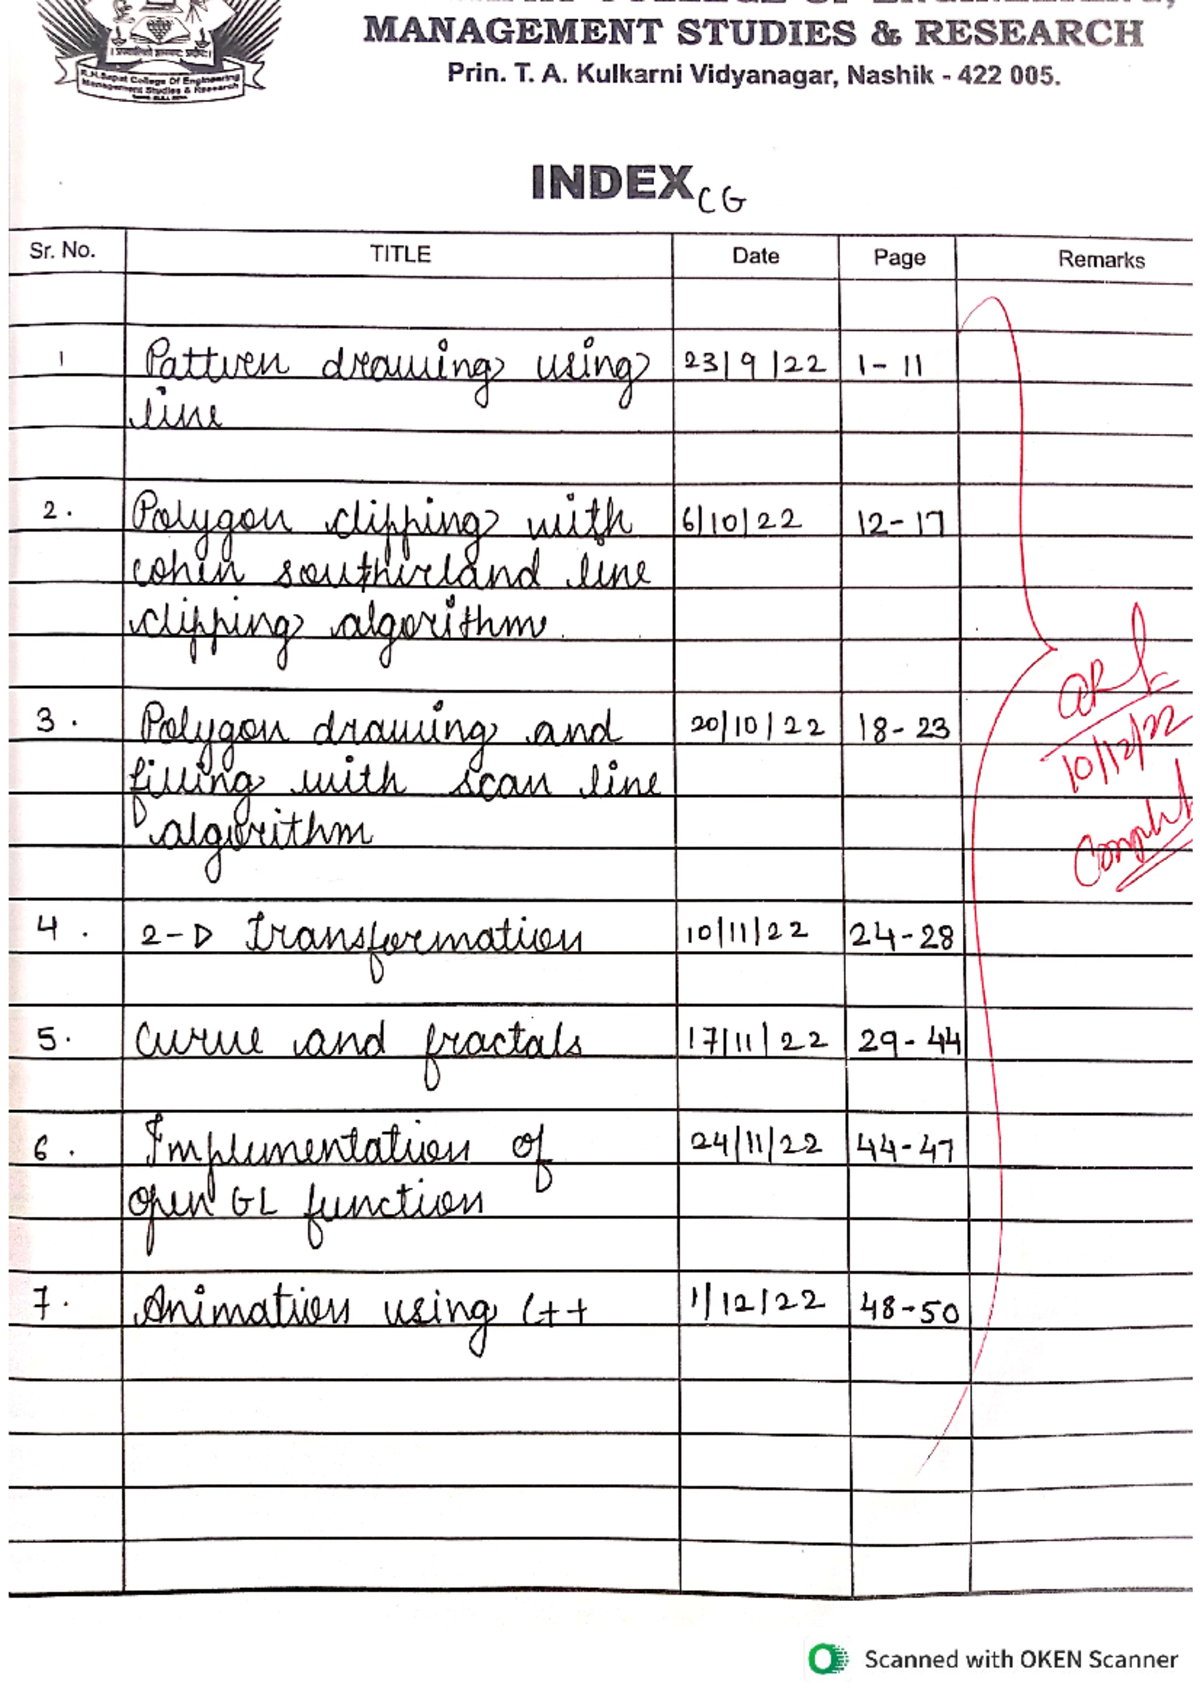 MANAGEMENT STUDIES & RESEARCH
Prin. T. A. Kulkarni Vidyanagar, Nashik - 422 005.
R.H.Sapat College Of Engineering
Management Studies & Research
INDEX CG
Sr. No. TITLE Date Page Remarks
1 Pattern drawing using 23/9/22 1-11
line
2. Polygon clipping with 6/10/22 12-17
cohen southerland line
clipping algorithm
3. Polygon drawing and 20/10/22 18-23
filling with scan line
algorithm
10/12/22
4. 2-D transformation 10/11/22 24-28
5. Curve and fractals 17/11/22 29-44
6. Implementation of 24/11/22 44-47
open GL function
7. Animation using C++ 1/12/22 48-50
Scanned with OKEN Scanner